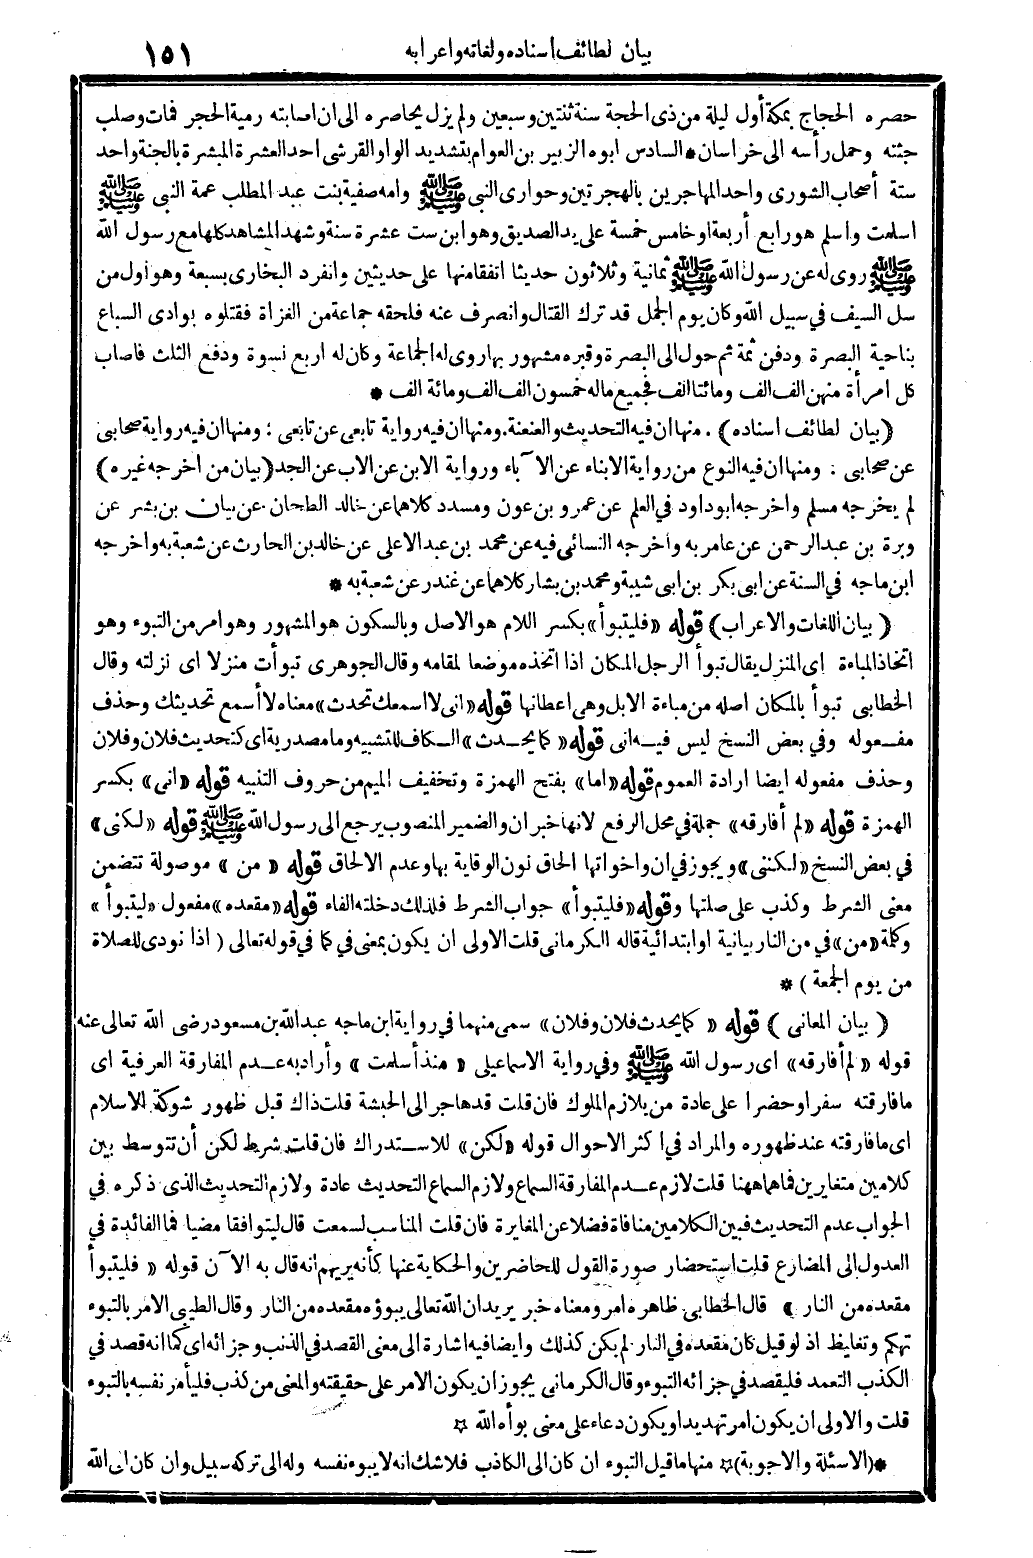 بيان لطائف اسناده ولغاته واعرابه ١٥١
حصره الحجاج بمكة أول ليلة من ذى الحجة سنة ثنتين وسبعين ولم يزل يحاصره الى ان اصابته رمية الحجر فمات وصلب
جثته وحمل رأسه الى خراسان * السادس ابوه الزبير بن العوام بتشديد الواو القرشى احد العشرة المبشرة بالجنة واحد
ستة أصحاب الشورى واحد المهاجرين بالهجرتين وحوارى النبى ﷺ وامه صفية بنت عبد المطلب عمة النبى ﷺ
اسلمت واسلم هو رابع أربعة او خامس خمسة على يد الصديق وهو ابن ست عشرة سنة وشهد المشاهد كلها مع رسول الله
ﷺ روى له عن رسول الله ﷺ ثمانية وثلاثون حديثا اتفقا منها على حديثين وانفرد البخارى بسبعة وهو أول من
سل السيف في سبيل الله وكان يوم الجمل قد ترك القتال وانصرف عنه فلحقه جماعة من الغزاة فقتلوه بوادى السباع
بناحية البصرة ودفن ثمة ثم حول الى البصرة وقبره مشهور بها روى له الجماعة وكان له اربع نسوة ودفع الثلث فاصاب
كل امرأة منهن الف الف ومائتا الف فجميع ماله خمسون الف الف ومائة الف *
(بيان لطائف اسناده) . منها ان فيه التحديث والعنعنة . ومنها ان فيه رواية تابعى عن تابعى : ومنها ان فيه رواية صحابى
عن صحابى : ومنها ان فيه النوع من رواية الابناء عن الآباء ورواية الابن عن الاب عن الجد (بيان من اخرجه غيره)
لم يخرجه مسلم واخرجه ابو داود في العلم عن عمرو بن عون ومسدد كلاهما عن خالد الطحان عن بيان بن بشر عن
وبرة بن عبد الرحمن عن عامر به واخرجه النسائى فيه عن محمد بن عبد الاعلى عن خالد بن الحارث عن شعبة به واخرجه
ابن ماجه في السنة عن ابى بكر بن ابى شيبة ومحمد بن بشار كلاهما عن غندر عن شعبة به *
( بيان اللغات والاعراب) قوله «فليتبوأ» بكسر اللام هو الاصل وبالسكون هو المشهور وهو امر من التبوء وهو
اتخاذ المباءة اى المنزل يقال تبوأ الرجل المكان اذا اتخذه موضعا لمقامه وقال الجوهرى تبوأت منزلا اى نزلته وقال
الخطابى تبوأ بالمكان اصله من مباءة الابل وهى اعطانها قوله «انى لا اسمعك تحدث» معناه لا أسمع تحديثك وحذف
مفعوله وفي بعض النسخ ليس فيه انى قوله «كما يحدث» الكاف للتشبيه وما مصدرية اى كتحديث فلان وفلان
وحذف مفعوله ايضا ارادة العموم قوله «اما» بفتح الهمزة وتخفيف الميم من حروف التنبيه قوله «انى» بكسر
الهمزة قوله «لم أفارقه» جملة في محل الرفع لانها خبر ان والضمير المنصوب يرجع الى رسول الله ﷺ قوله «لكنى»
في بعض النسخ «لكننى» ويجوز في ان واخواتها الحاق نون الوقاية بها وعدم الالحاق قوله «من» موصولة تتضمن
معنى الشرط وكذب على صلتها وقوله «فليتبوأ» جواب الشرط فلذلك دخلته الفاء قوله «مقعده» مفعول «ليتبوأ»
وكلمة «من» في من النار بيانية او ابتدائية قاله الكرمانى قلت الاولى ان يكون بمعنى في كما في قوله تعالى ( اذا نودى للصلاة
من يوم الجمعة ) *
( بيان المعانى ) قوله « كما يحدث فلان وفلان» سمى منهما في رواية ابن ماجه عبد الله بن مسعود رضى الله تعالى عنه
قوله « لم أفارقه» اى رسول الله ﷺ وفي رواية الاسماعيلى « منذ أسلمت » وأراد به عدم المفارقة العرفية اى
ما فارقته سفرا وحضرا على عادة من يلازم الملوك فان قلت قد هاجر الى الحبشة قلت ذاك قبل ظهور شوكة الاسلام
اى ما فارقته عند ظهوره والمراد في اكثر الاحوال قوله «لكن» للاستدراك فان قلت شرط لكن أن تتوسط بين
كلامين متغايرين فما هما ههنا قلت لازم عدم المفارقة السماع ولازم السماع التحديث عادة ولازم التحديث الذى ذكره في
الجواب عدم التحديث فبين الكلامين منافاة فضلا عن المغايرة فان قلت المناسب لسمعت قال ليتوافقا مضيا فما الفائدة في
العدول الى المضارع قلت استحضار صورة القول للحاضرين والحكاية عنها كأنه يريهم انه قال به الآن قوله « فليتبوأ
مقعده من النار » قال الخطابى ظاهره امر ومعناه خبر يريد ان الله تعالى يبوؤه مقعده من النار وقال الطيبى الامر بالتبوء
تهكم وتغليظ اذ لو قيل كان مقعده في النار لم يكن كذلك وايضا فيه اشارة الى معنى القصد في الذنب وجزائه اى كما انه قصد في
الكذب التعمد فليقصد في جزائه التبوء وقال الكرمانى يجوز ان يكون الامر على حقيقته والمعنى من كذب فليأمر نفسه بالتبوء
قلت والاولى ان يكون امر تهديد او يكون دعاء على معنى بوأه الله *
*(الاسئلة والاجوبة)* منها ما قيل التبوء ان كان الى الكاذب فلا شك انه لا يبوء نفسه وله الى تركه سبيل وان كان الى الله